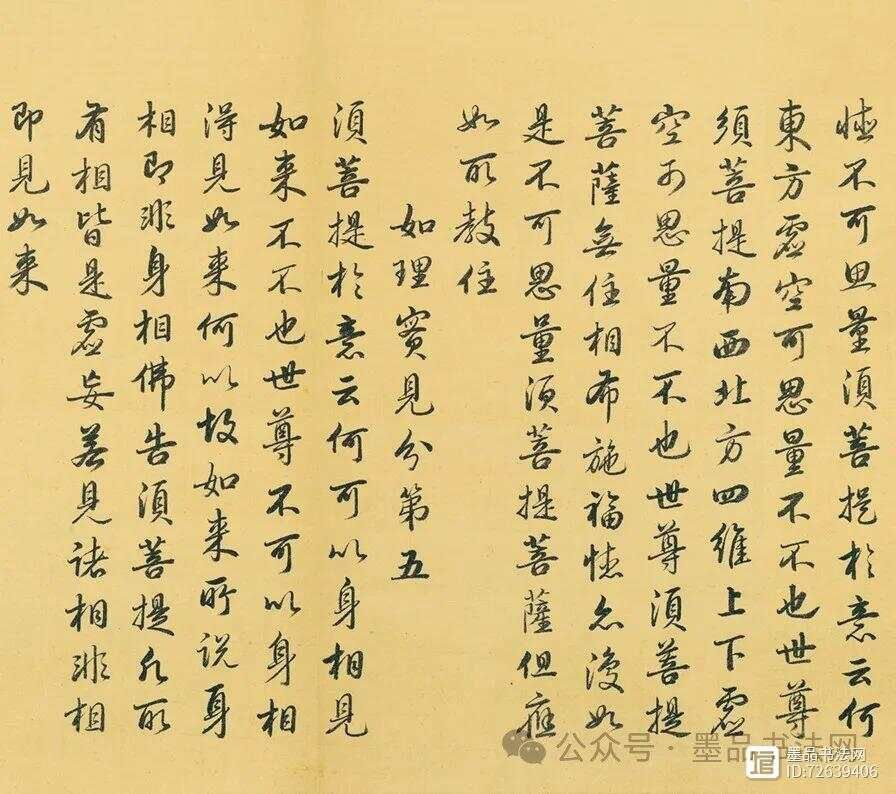 德不可思量須菩提於意云何
東方虛空可思量不不也世尊
須菩提南西北方四維上下虛
空可思量不不也世尊須菩提
菩薩無住相布施福德亦復如
是不可思量須菩提菩薩但應
如所教住
如理實見分第五
須菩提於意云何可以身相見
如來不不也世尊不可以身相
得見如來何以故如來所說身
相即非身相佛告須菩提凡所
有相皆是虛妄若見諸相非相
即見如來
公众号·墨品书法网
墨品书法网
ID:72639406